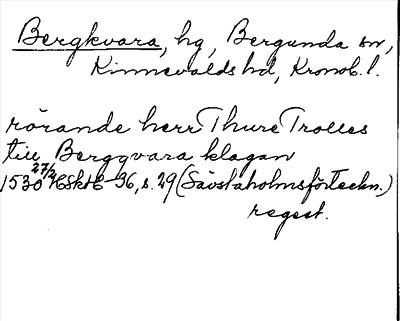 Bergkvara, hg, Bergunda sn,
Kinnevalds hd, Kronob. l.
rörande herr Thure Trolles
till Bergqvara klagan
1530 27/2 HSkH 36, s. 29 (Säfstaholmsförteckn.)
regest.